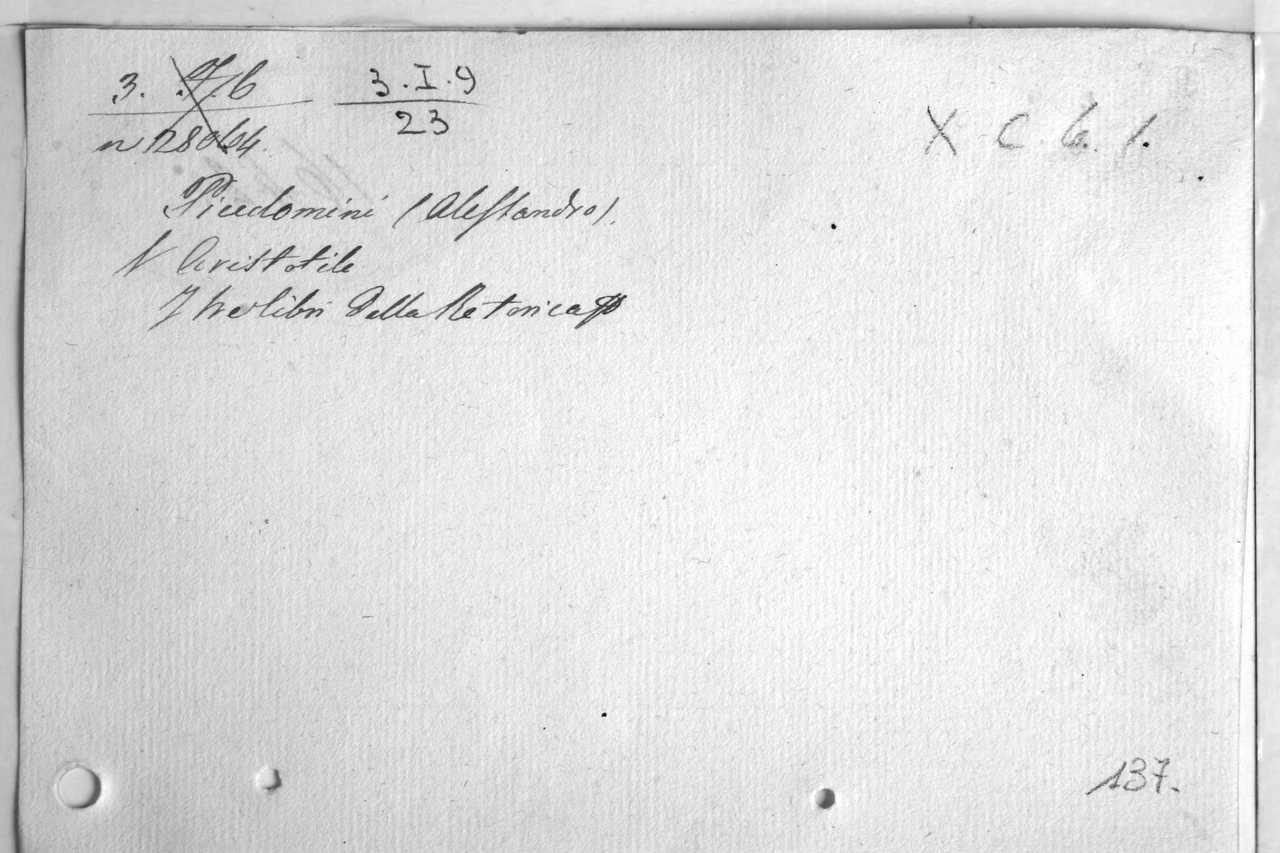 3. 3.I.9
23
X C. 6. 1.
Piccolomini (Alessandro).
V Aristotile
I tre libri della Retorica
137.